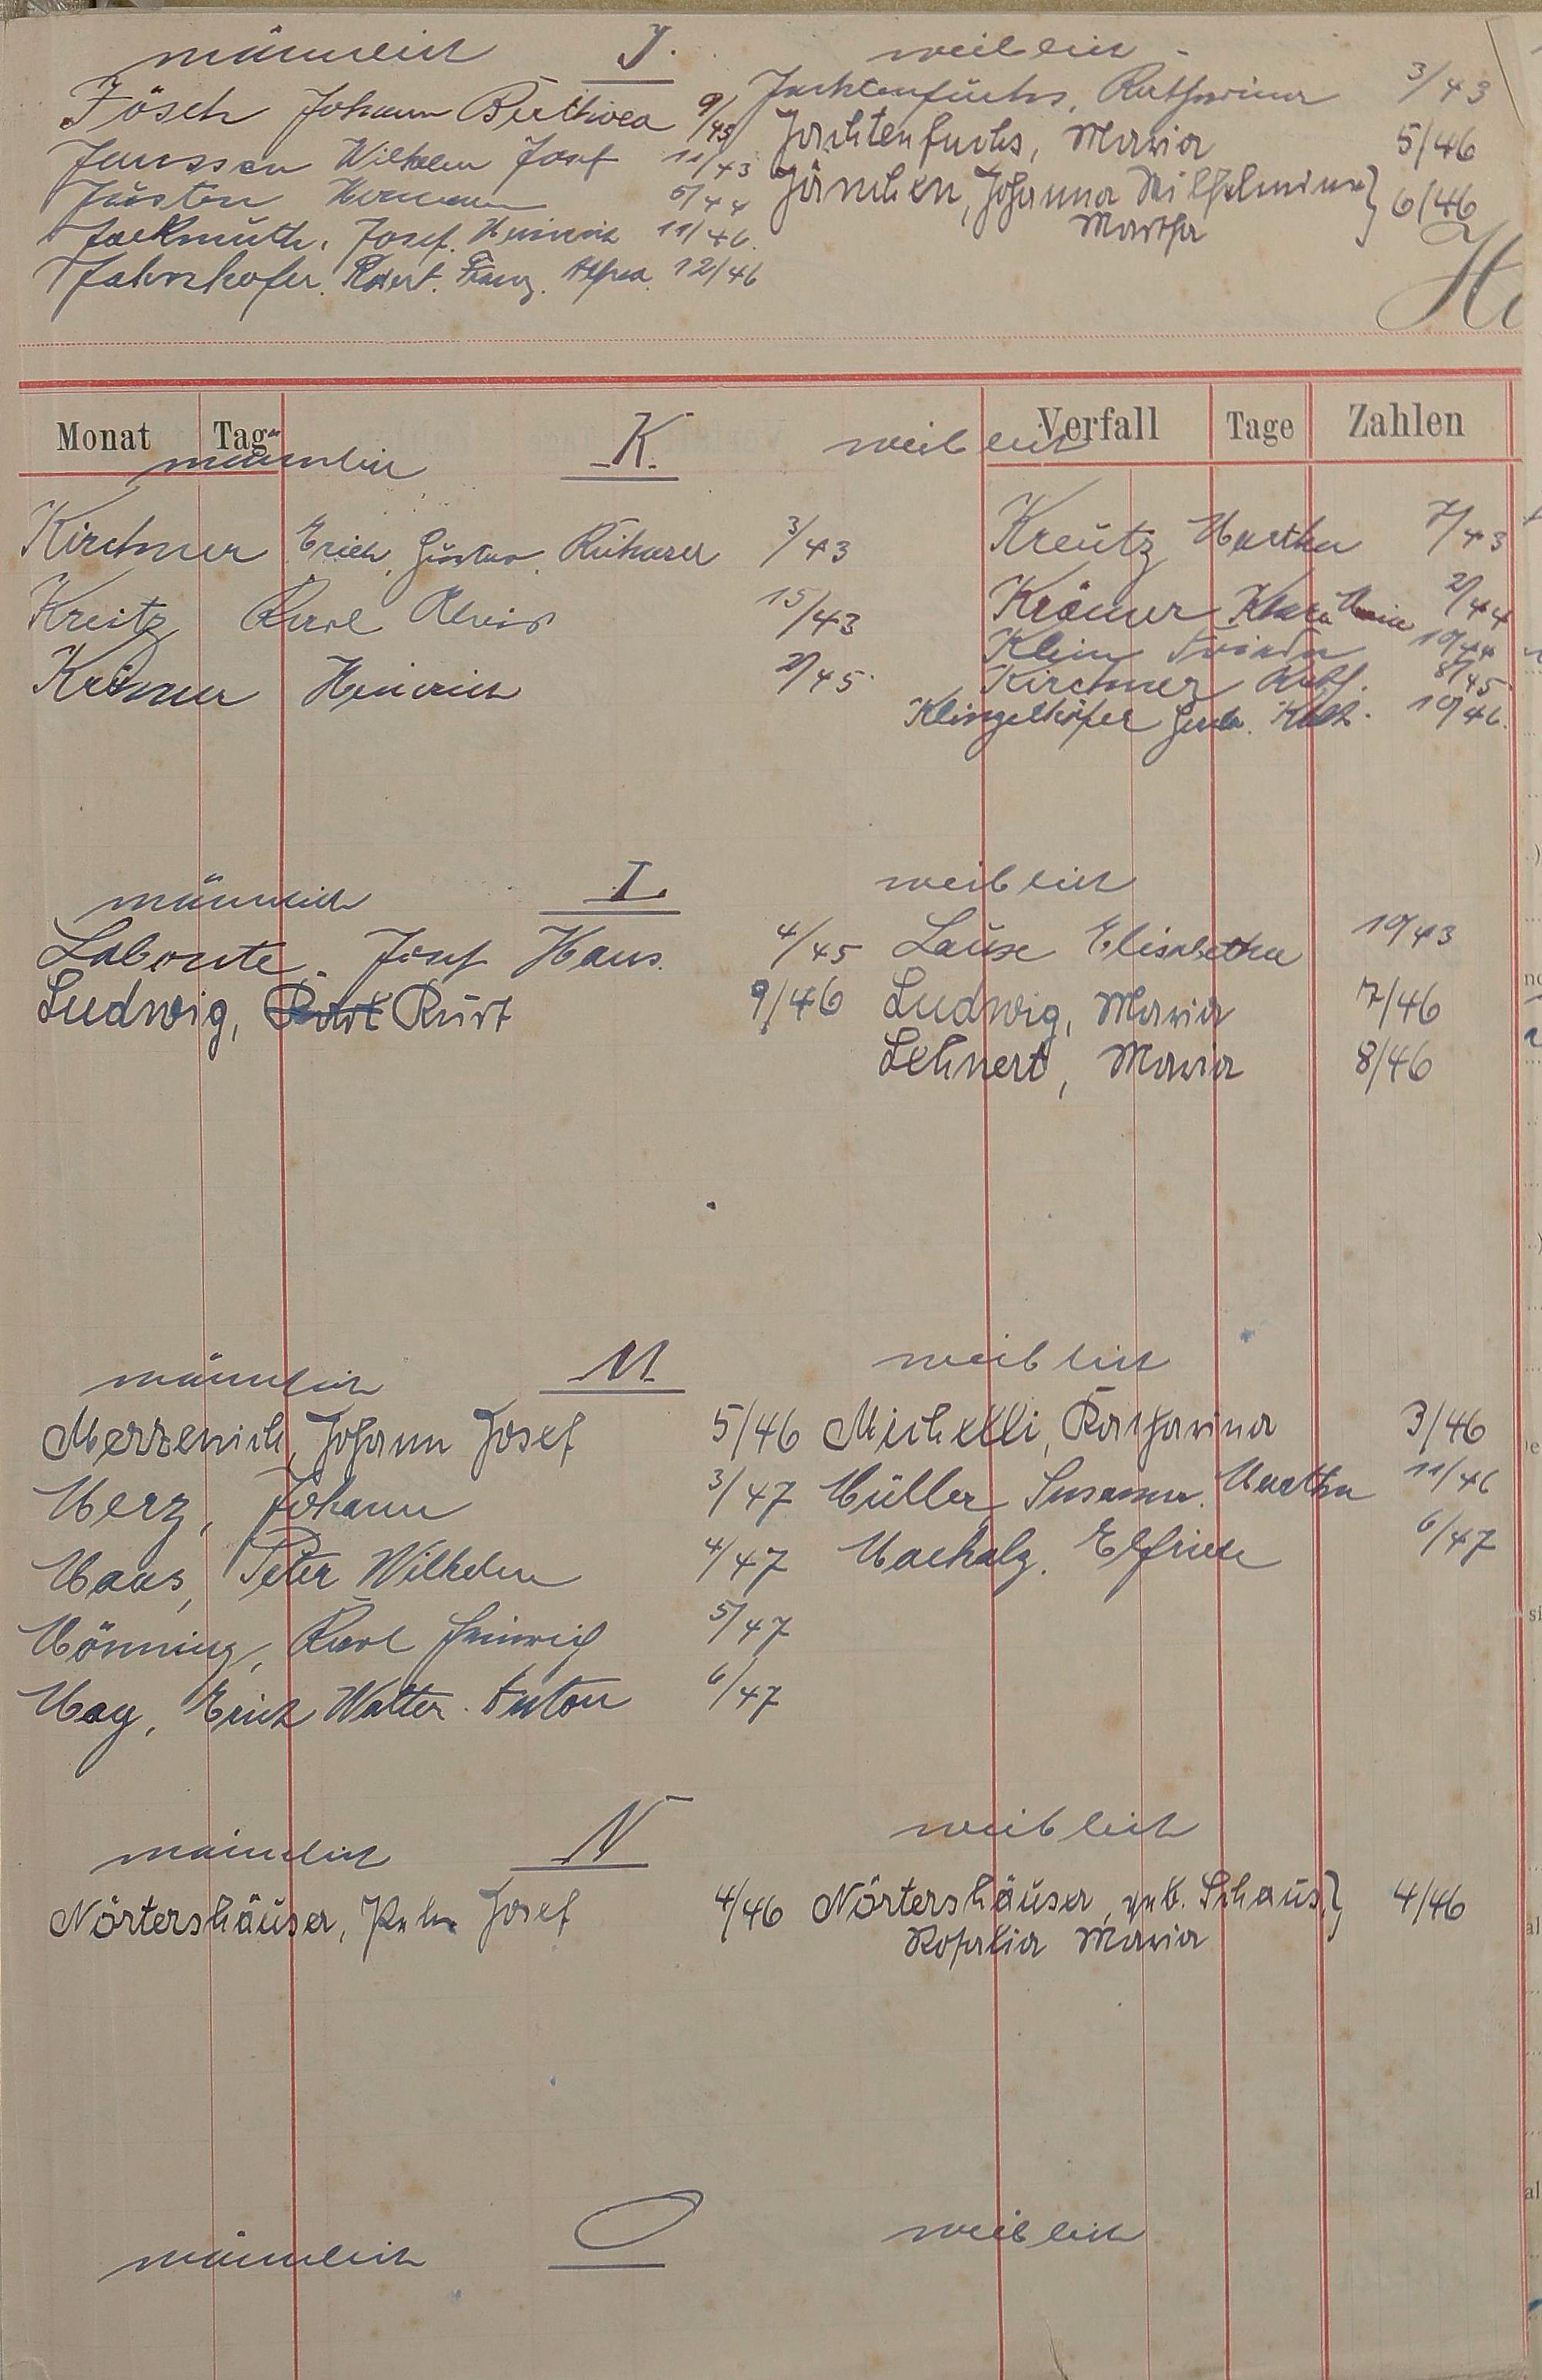 männlich J. weiblich
Jösch Johann Berthold 9/43 Jachtenfuchs, Katharina 3/43
Janssen Wilhelm Josef 11/43 Jachtenfuchs, Maria 5/46
Justen Hermann 5/44 Jänchen, Johanna Wilhelmine } 6/46
Martha
Jackmuth, Josef. Heinrich 11/46.
Jahnshofer. Robert. Franz. Alfred. 12/46
Monat Tag Verfall Tage Zahlen
männlich K. weiblich
Kirchner Erich, Gustav. 3/43 Kreutz Martha 7/43
Kreitz Karl Alois 15/43 Krämer Klara Maria 2/44
Klein Frieda 10/44
Krämer Heinrich 2/45. Kirchner Kath. 8/45
Klingelhöfer Gerda. Kath. 10/46.
männlich L. weiblich
Labonte. Josef Hans. 4/45 Lause Elisabetha 10/43
Ludwig, Kurt 9/46 Ludwig, Maria 7/46
Lehnert, Maria 8/46
männlich M weiblich
Merzenich, Johann Josef 5/46 Michelli, Katharina 3/46
Merz, Johann 3/47 Müller, Susanna. Martha 11/46
Maas, Peter Wilhelm 4/47 Machalz. Elfriede 6/47
Mönning, Karl Heinrich 5/47
May, Erich Walter. Anton 6/47
männlich N weiblich
Nörtershäuser, Josef 4/46 Nörtershäuser, geb. Schaus, } 4/46
Rosalia Maria
männlich O weiblich